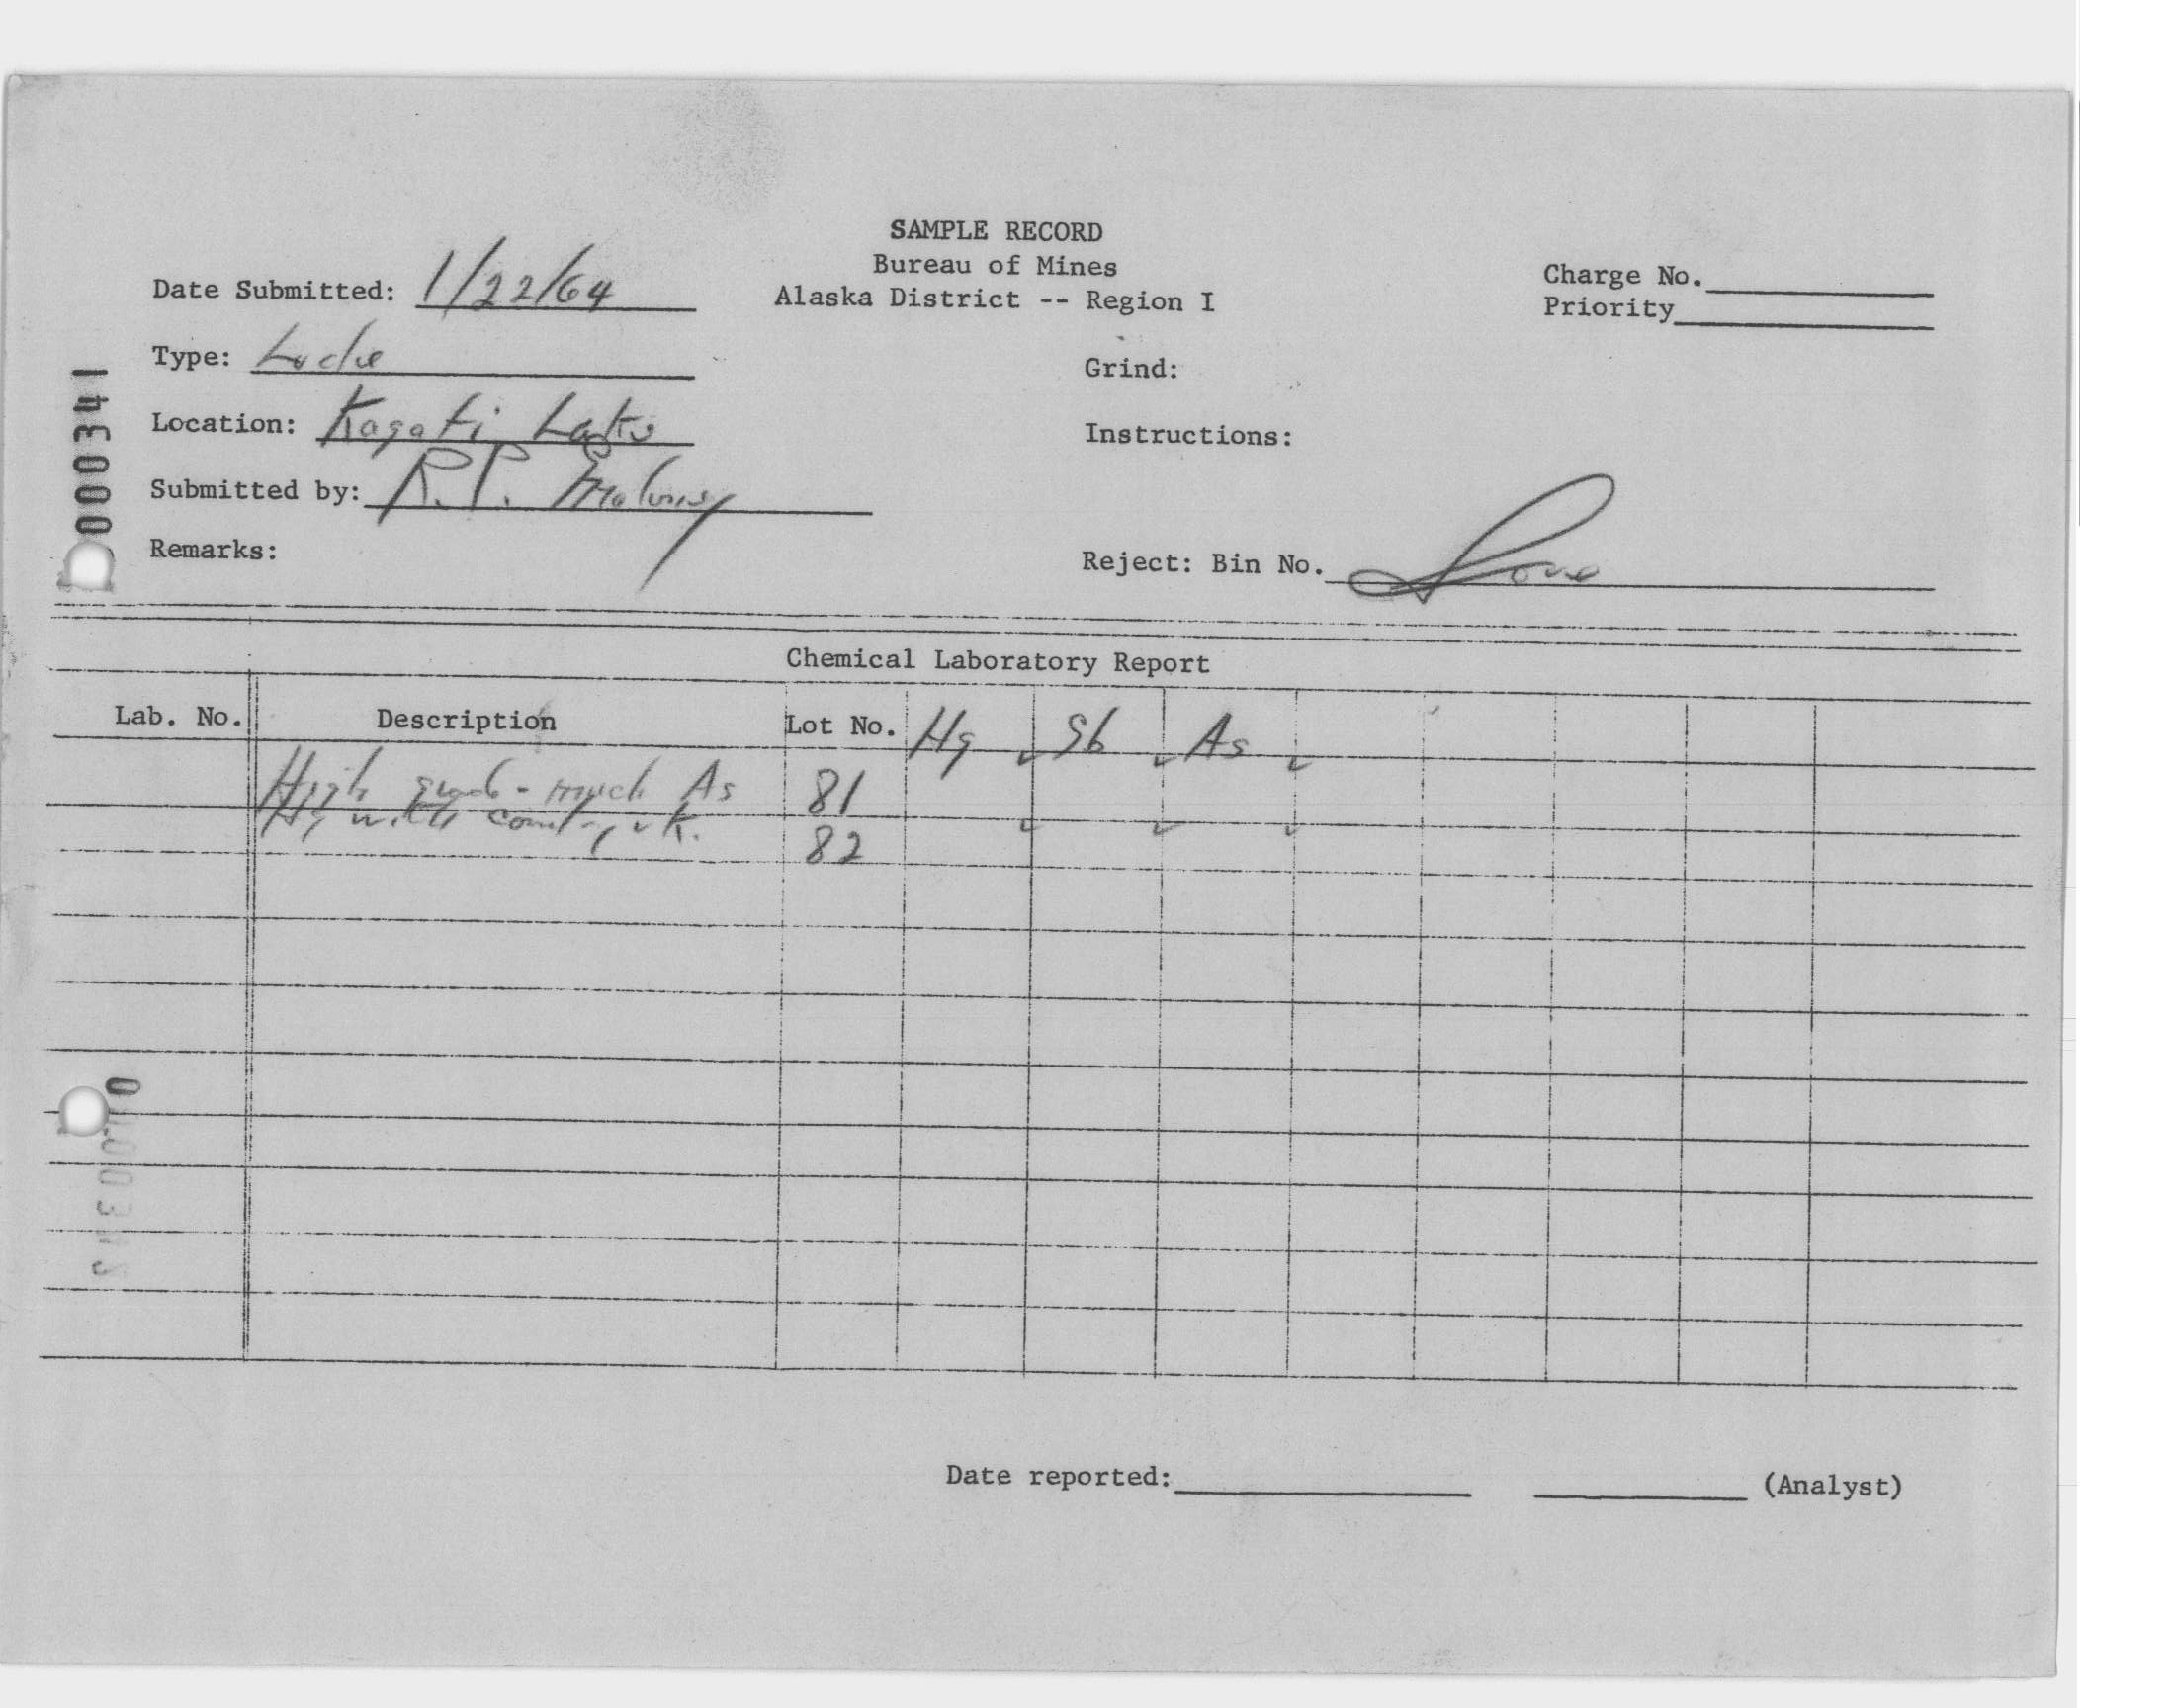 SAMPLE RECORD
Bureau of Mines
Alaska District -- Region I
Charge No.
Priority
Date Submitted: 1/22/64
Type: Lode
Grind:
Location: Kagati Lake
Instructions:
Submitted by: R.P. Maloney
Remarks:
Reject: Bin No. Save
000341
Chemical Laboratory Report
Lab. No. Description Lot No. Hg Sb As
High grade - much As 81
Hg with country rk. 82
Date reported: (Analyst)